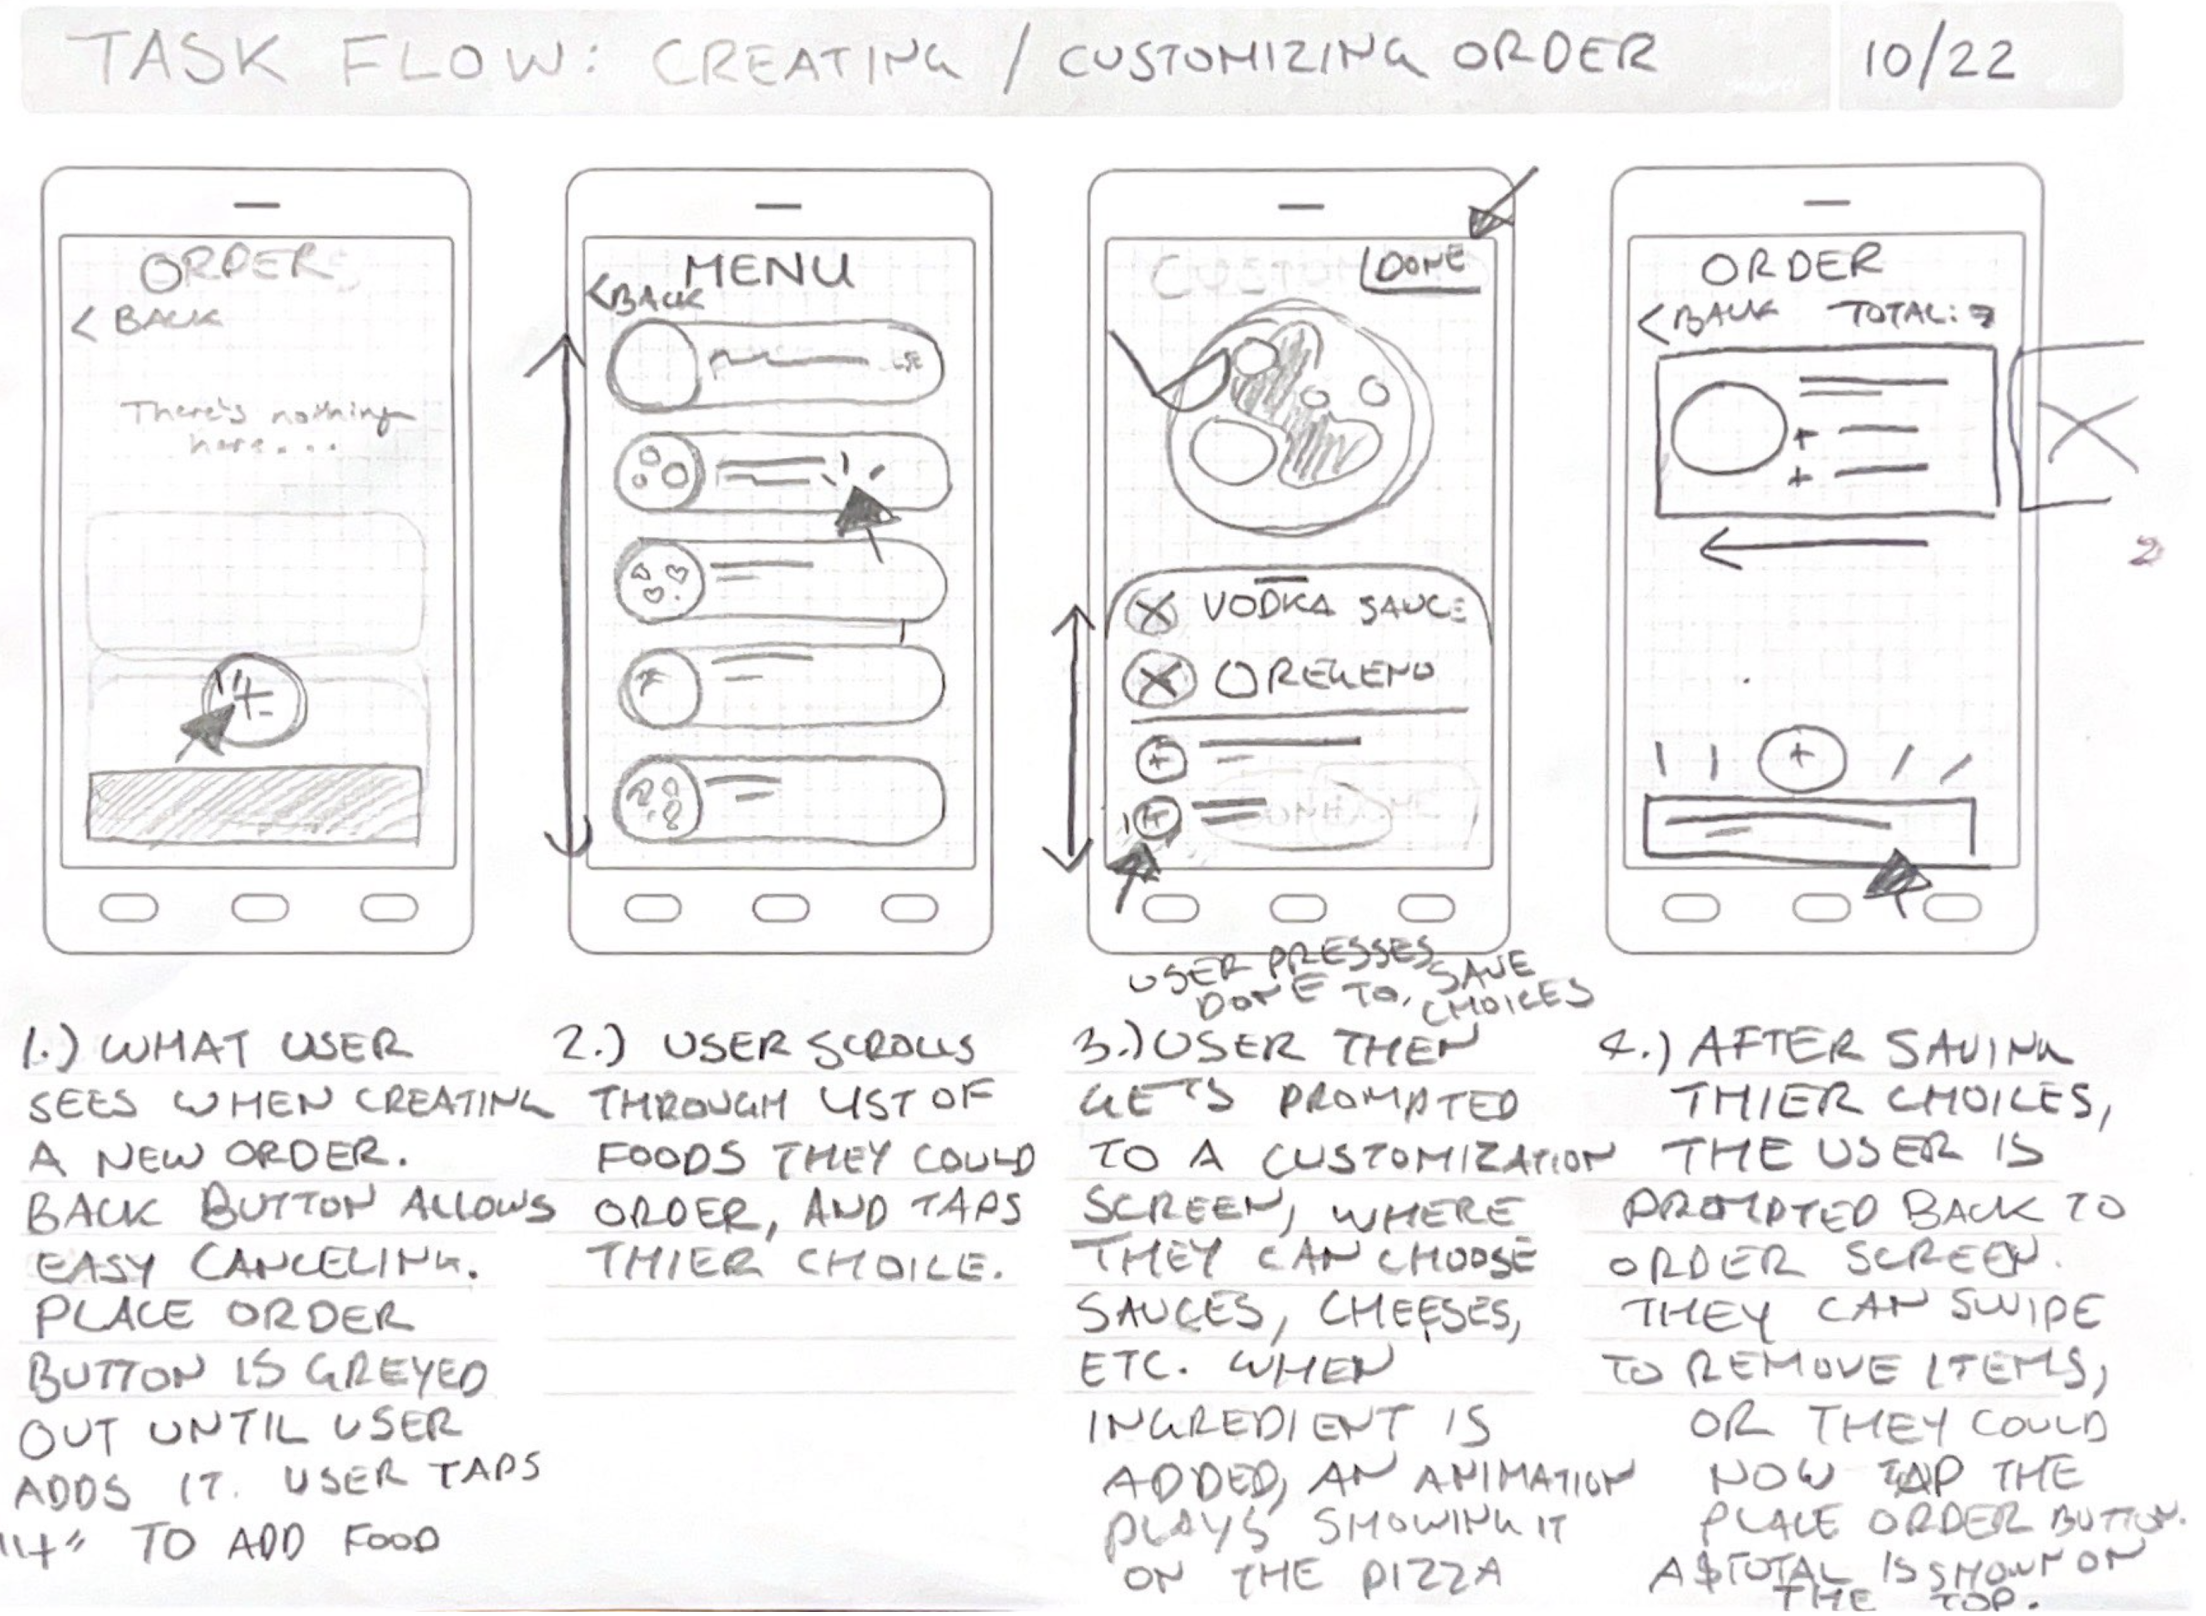 TASK FLOW: CREATING / CUSTOMIZING ORDER 10/22
ORDERS
< BACK
There's nothing
here....
+
MENU
<BACK
DONE
VODKA SAUCE
OREGENO
+
+
ORDER
<BACK TOTAL:
+
+
+
2
USER PRESSES SAVE
DONE TO, CHOICES
1.) WHAT USER
SEES WHEN CREATING
A NEW ORDER.
BACK BUTTON ALLOWS
EASY CANCELING.
PLACE ORDER
BUTTON IS GREYED
OUT UNTIL USER
ADDS IT. USER TAPS
"+" TO ADD FOOD
2.) USER SCROLLS
THROUGH LIST OF
FOODS THEY COULD
ORDER, AND TAPS
THIER CHOICE.
3.) USER THEN
GETS PROMPTED
TO A CUSTOMIZATION
SCREEN, WHERE
THEY CAN CHOOSE
SAUCES, CHEESES,
ETC. WHEN
INGREDIENT IS
ADDED, AN ANIMATION
PLAYS SHOWING IT
ON THE PIZZA
4.) AFTER SAVING
THIER CHOICES,
THE USER IS
PROMPTED BACK TO
ORDER SCREEN.
THEY CAN SWIPE
TO REMOVE ITEMS,
OR THEY COULD
NOW TAP THE
PLACE ORDER BUTTON.
A $TOTAL IS SHOWN ON
THE TOP.